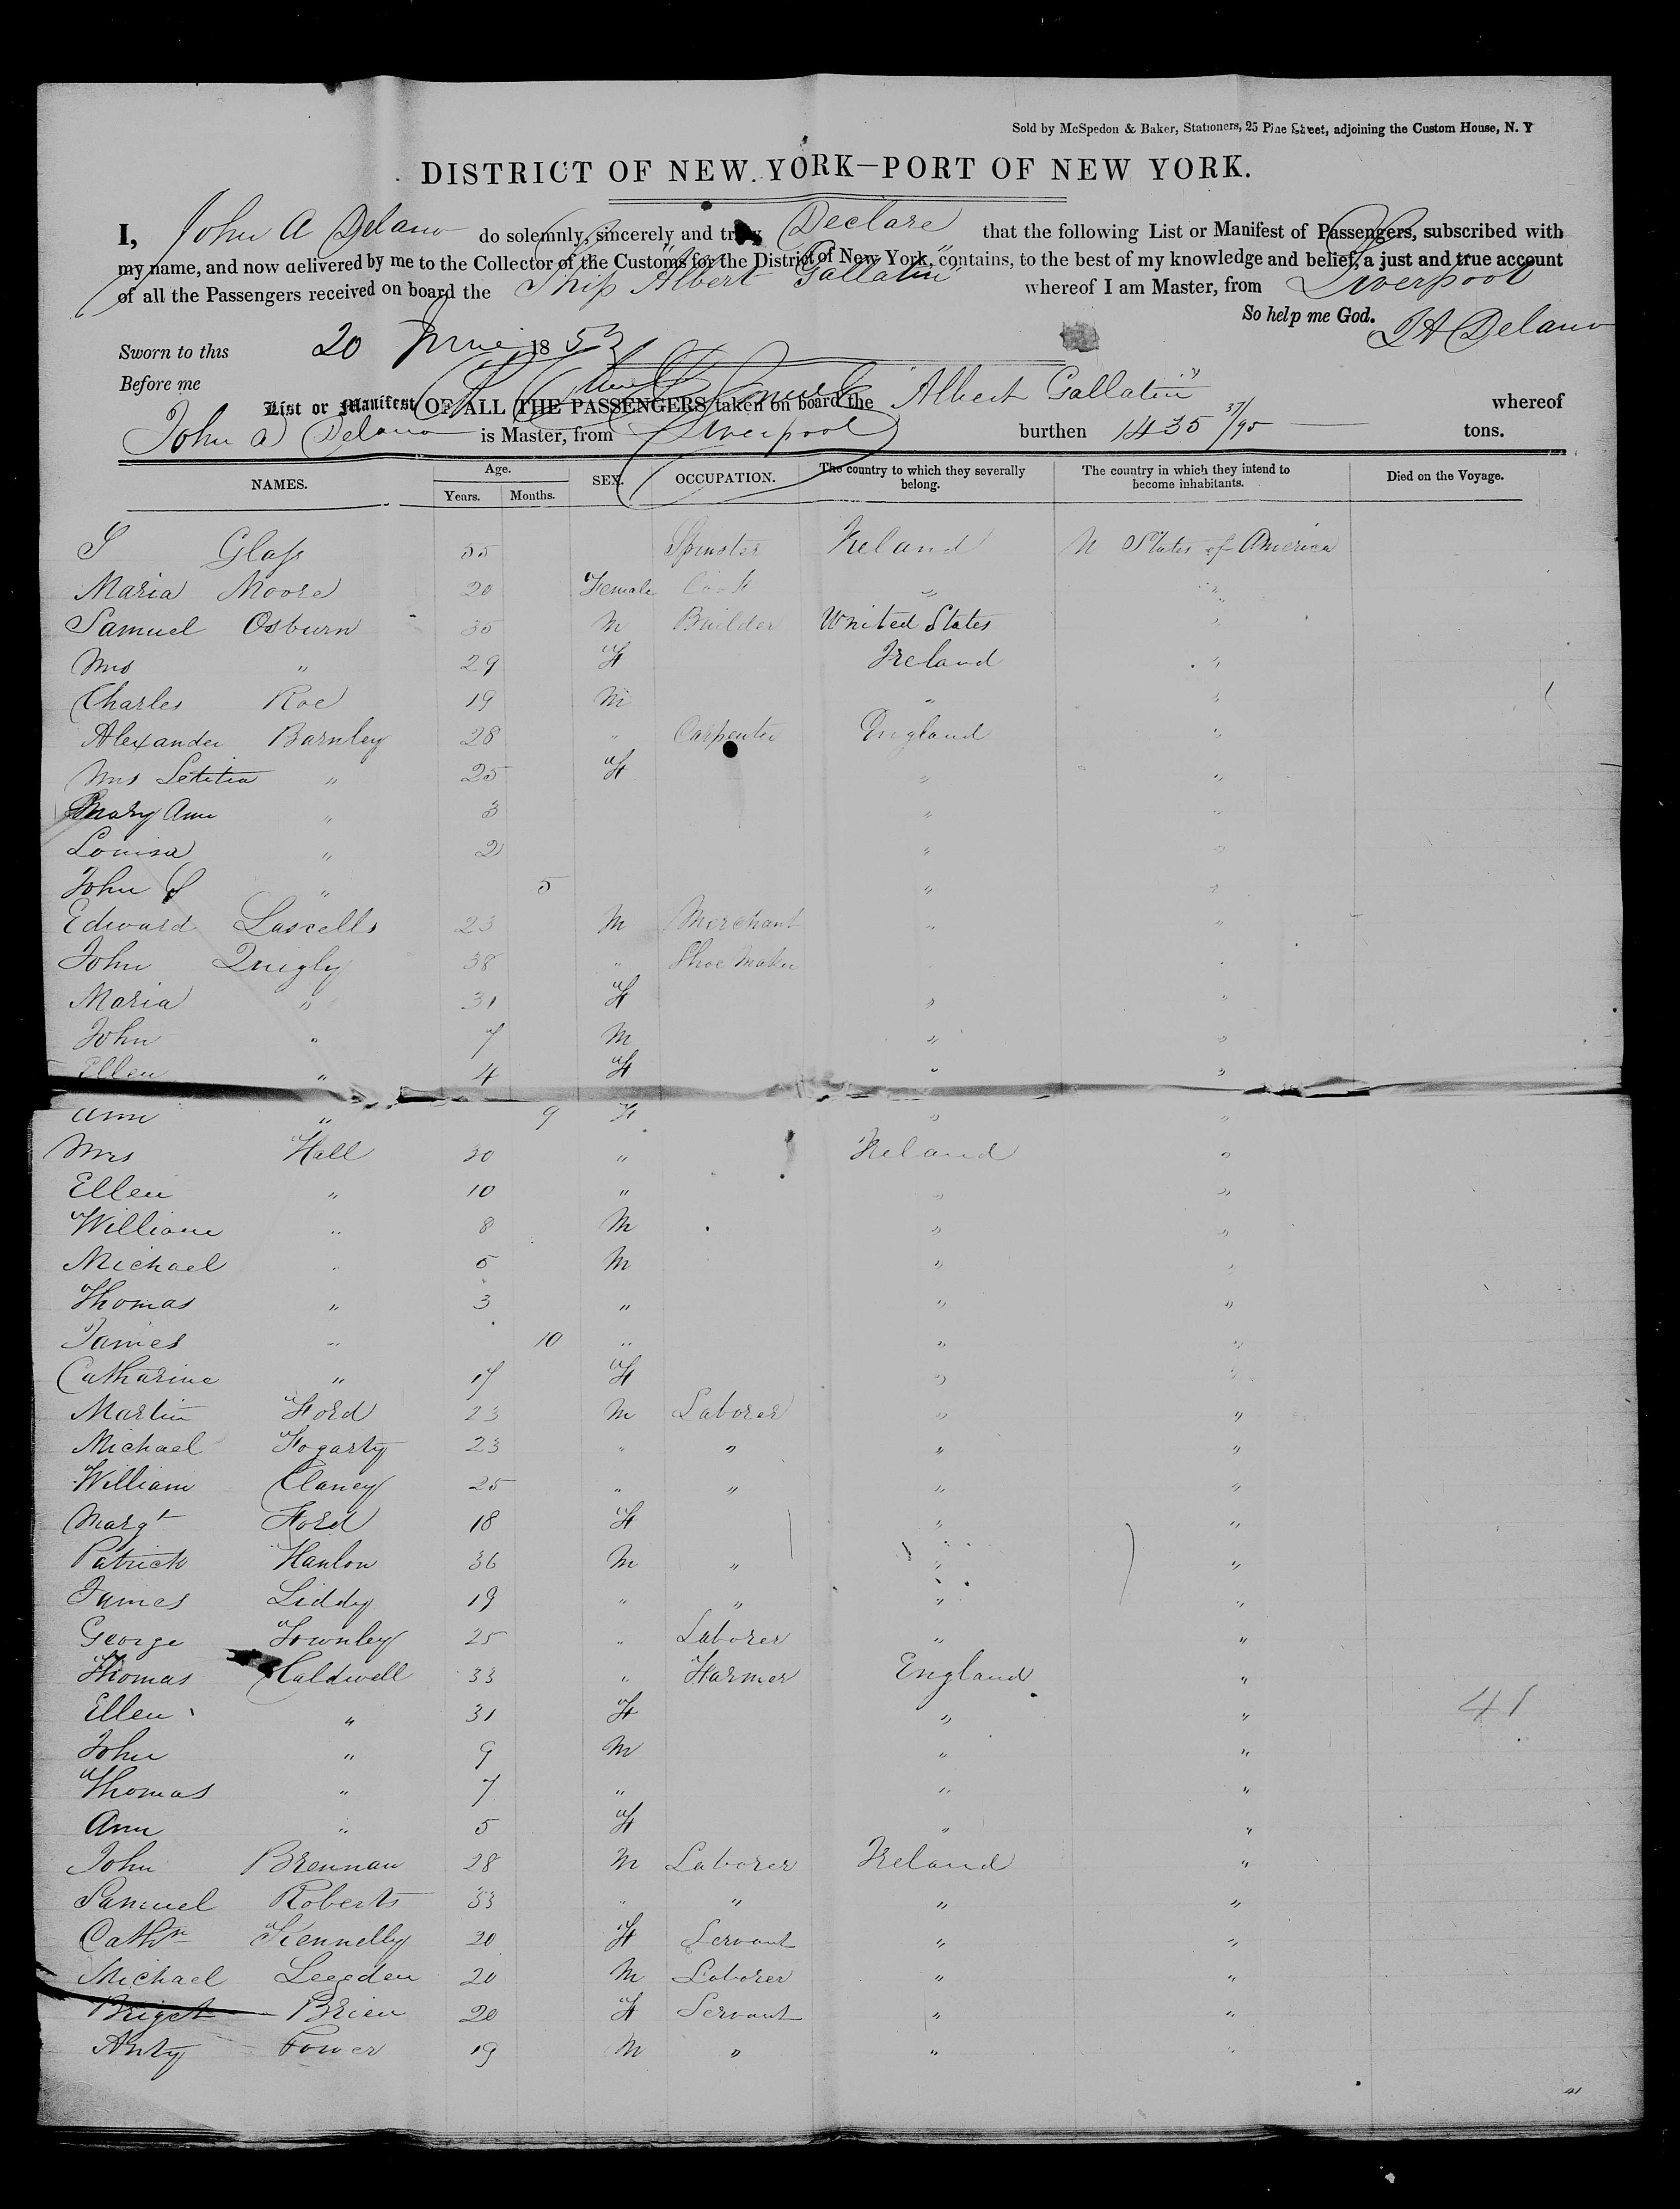 Sold by McSpedon & Baker, Stationers, 25 Pine Street, adjoining the Custom House, N. Y
DISTRICT OF NEW YORK—PORT OF NEW YORK.
I, John A Delano do solemnly, sincerely and truly Declare that the following List or Manifest of Passengers, subscribed with
my name, and now delivered by me to the Collector of the Customs for the District of New York, contains, to the best of my knowledge and belief, a just and true account
of all the Passengers received on board the Ship "Albert Gallatin" whereof I am Master, from Liverpool
So help me God. J A Delano
Sworn to this 20 June 1853
Before me
List or Manifest OF ALL THE PASSENGERS taken on board the "Albert Gallatin" whereof
John A Delano is Master, from Liverpool burthen 1435 37/95 tons.
NAMES. Age. Years. Months. SEX. OCCUPATION. The country to which they severally belong. The country in which they intend to become inhabitants. Died on the Voyage.
S Glass 55 Spinster Ireland U States of America
Maria Moore 20 Female Cook " "
Samuel Osburn 35 M Builder United States "
Mrs " 29 F Ireland "
Charles Roe 19 M " "
Alexander Barnley 28 " Carpenter England "
Mrs Letitia " 25 F " "
Mary Ann " 3 " "
Louisa " 2 " "
John S " 5 " "
Edward Lascells 23 M Merchant " "
John Quigly 38 " Shoe Maker " "
Maria " 31 F " "
John " 7 M " "
Ellen " 4 F " "
Ann " 9 F " "
Mrs Hall 30 " Ireland "
Ellen " 10 " " "
William " 8 M " "
Michael " 5 M " "
Thomas " 3 " " "
James " 10 " " "
Catharine " 17 F " "
Martin Ford 23 M Laborer " "
Michael Fogarty 23 " " " "
William Clancy 25 " " " "
Margt Ford 18 F " "
Patrick Hanlon 36 M " " "
James Liddy 19 " " " "
George Townley 25 " Laborer " "
Thomas Caldwell 33 " Farmer England "
Ellen " 31 F " " 41
John " 9 M " "
Thomas " 7 " " "
Ann " 5 F " "
John Brennan 28 M Laborer Ireland "
Samuel Roberts 33 " " " "
Cathn Kennelly 20 F Servant " "
Michael Leegden 20 M Laborer " "
Briget Brien 20 F Servant " "
Anty Power 19 M " " "
41